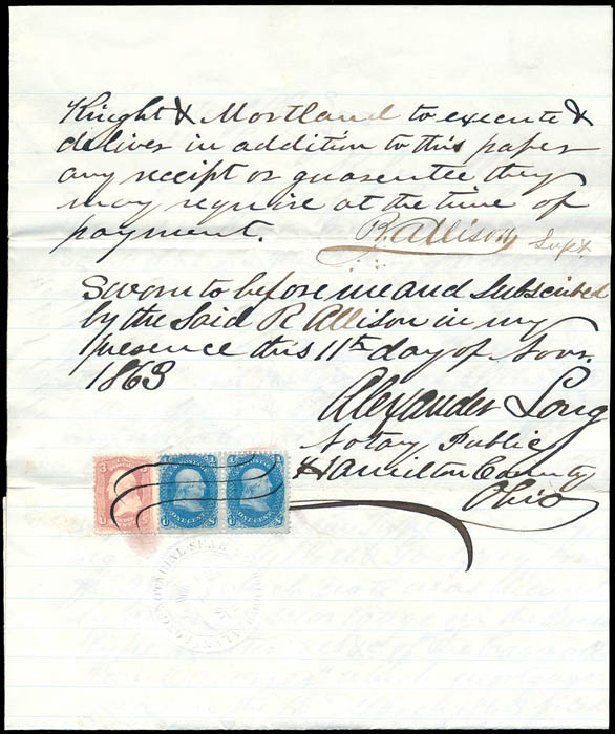 Knight & Mortland to execute &
deliver in addition to this paper
any receipt or guarantee they
may require at the time of
payment. R. Allison Supt.
Sworn to before me and subscribed
by the said R Allison in my
presence this 11th day of Novr.
1863
Alexander Long
Notary Public
Hamilton County
Ohio
3 3
U S
1 1 1 1
U ONE CENT S U ONE CENT S
NOTARIAL SEAL